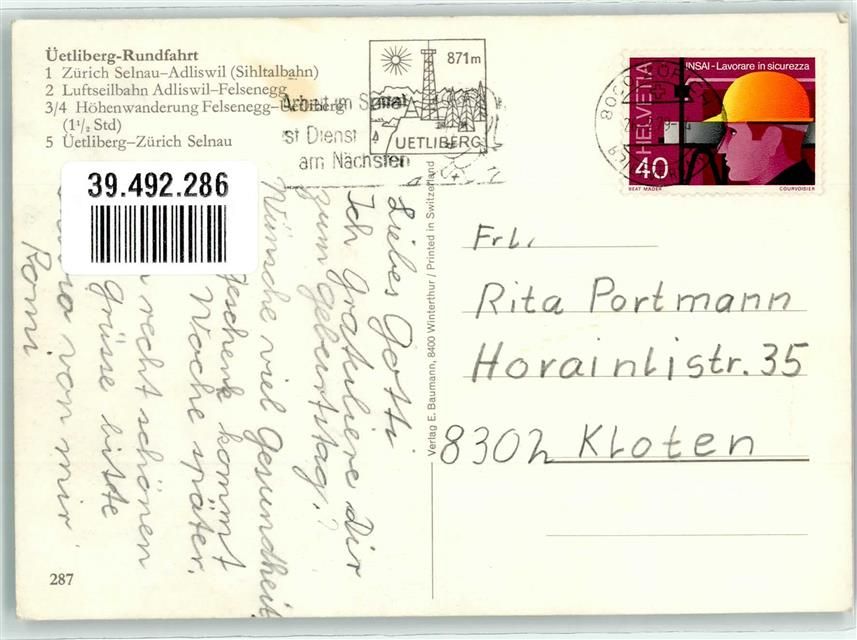 Üetliberg-Rundfahrt
1 Zürich Selnau–Adliswil (Sihltalbahn)
2 Luftseilbahn Adliswil–Felsenegg
3/4 Höhenwanderung Felsenegg–Uetliberg
(1½ Std)
5 Üetliberg–Zürich Selnau
Arbeit im Spital
ist Dienst
am Nächsten
871m
UETLIBERG
INSAI - Lavorare in sicurezza
HELVETIA
40
BEAT MADER
COURVOISIER
39.492.286
Liebes Gotti
Ich gratuliere Dir
zum Geburtstag.
Wünsche viel Gesundheit
Geschenk kommt
Woche später.
recht schönen
Grüsse bitte
von mir
Romi
Verlag E. Baumann, 8400 Winterthur / Printed in Switzerland
Frl.
Rita Portmann
Horainlistr. 35
8302 Kloten
287